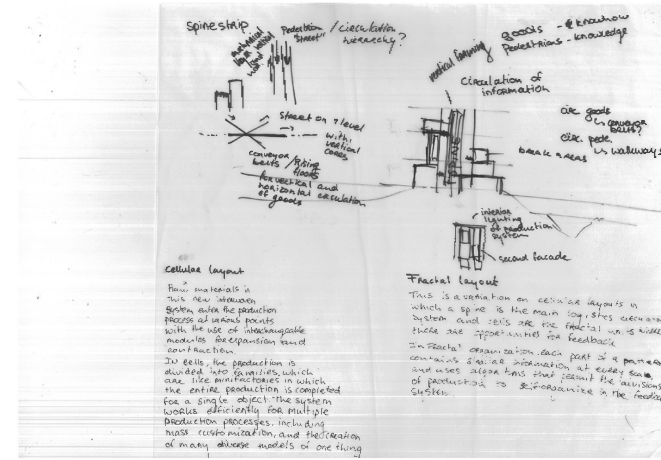 spinestrip
Pedestrian "street" / circulation hierarchy?
goods - knowhow
Pedestrians - knowledge
vertical farming
circulation of information
street on 1 level
with vertical cores
conveyor belts / Rising floors
for vertical and horizontal circulation of goods
circ goods
↳ conveyor belts?
circ. pede.
↳ walkways
break areas
interior lighting of production system
second facade
Cellular layout
Raw materials in
this new interwoven
system enter the production
process at various points
with the use of interchangeable
modules for expansion and
contraction.
In cells, the production is
divided into families, which
are like minifactories in which
the entire production is completed
for a single object. The system
works efficiently for multiple
production processes, including
mass customization, and the creation
of many diverse models of one thing
Fractal layout
This is a variation on cellular layouts in
which a spine is the main logistics
system and cells are the fractal units
there are opportunities for feedback
In Fractal organization, each part of a
contains similar information at every scale
and uses algorithms that permit the divisions
of production to self-organize in the feedback
system.